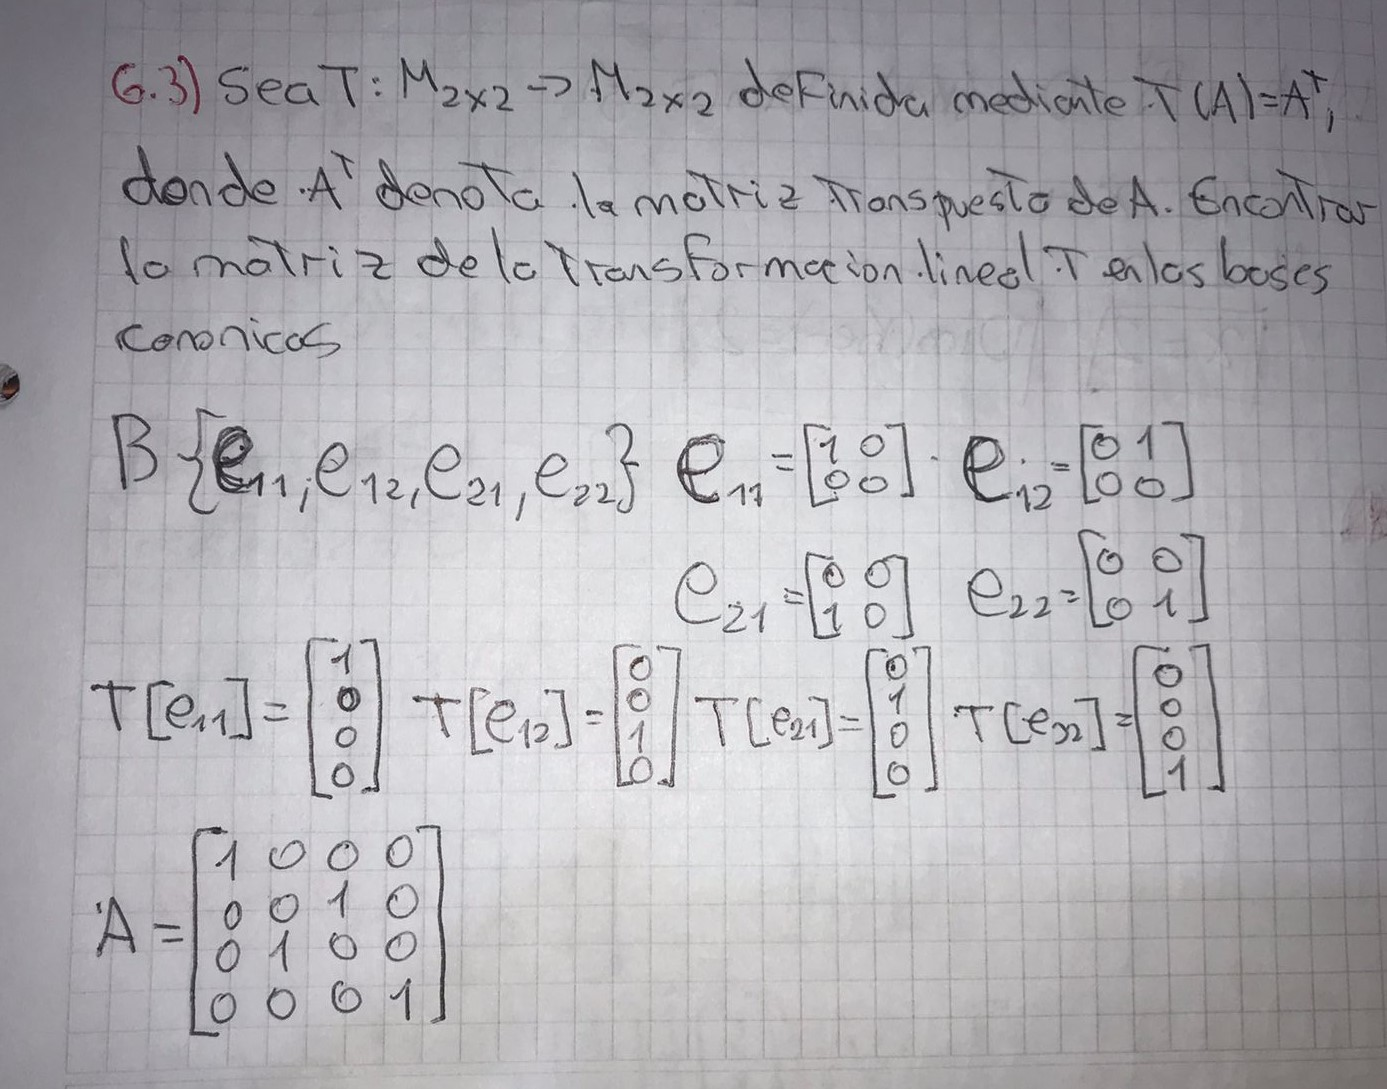 6.3) Sea T: M₂ₓ₂ -> M₂ₓ₂ definida mediante T(A)=Aᵀ,
donde Aᵀ denota la matriz transpuesta de A. Encontrar
la matriz de la transformacion lineal T en las bases
canonicas
B{e₁₁, e₁₂, e₂₁, e₂₂} e₁₁ = [1 0; 0 0] e₁₂ = [0 1; 0 0]
e₂₁ = [0 0; 1 0] e₂₂ = [0 0; 0 1]
T[e₁₁] = [1; 0; 0; 0] T[e₁₂] = [0; 0; 1; 0] T[e₂₁] = [0; 1; 0; 0] T[e₂₂] = [0; 0; 0; 1]
A = [1 0 0 0; 0 0 1 0; 0 1 0 0; 0 0 0 1]